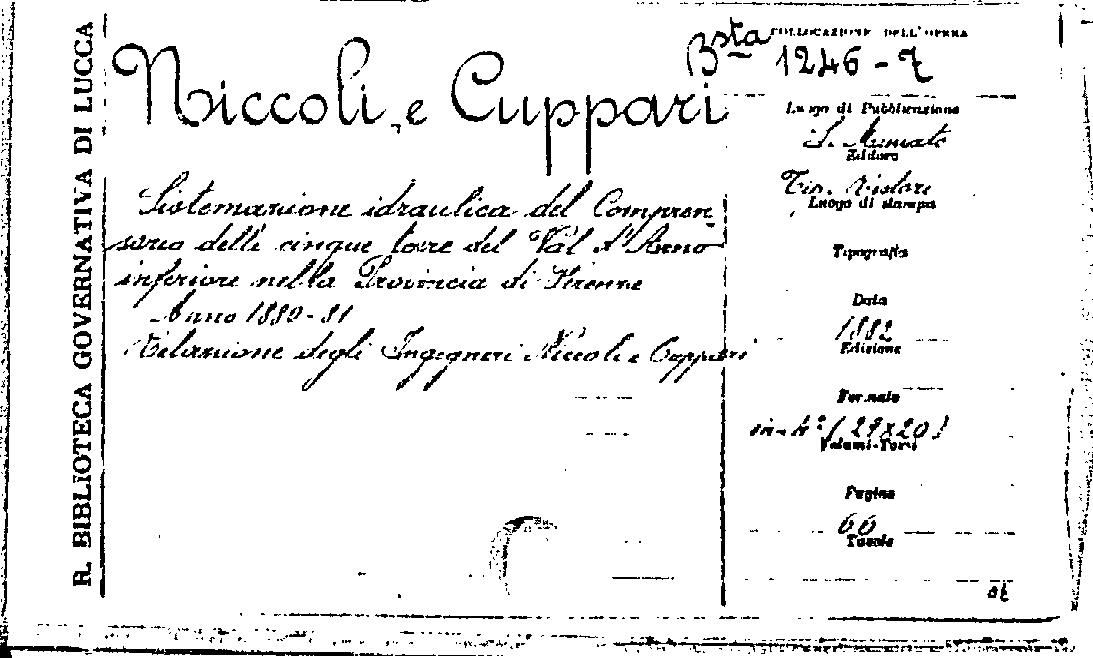 R. BIBLIOTECA GOVERNATIVA DI LUCCA
Niccoli, e Cuppari
Sistemazione idraulica del Compren
sorio delle cinque terre del Val d'Arno
inferiore nella Provincia di Firenze
Anno 1880-81
Relazione degli Ingegneri Niccoli e Cuppari
COLLOCAZIONE DELL'OPERA
Bsta 1246-7
Luogo di Pubblicazione
S. Miniato
Editore
Tip. Ristori
Luogo di stampa
Tipografia
Data
1882
Edizione
Formato
in-4° (29x20)
Volumi-Tomi
Pagine
66
Tavole